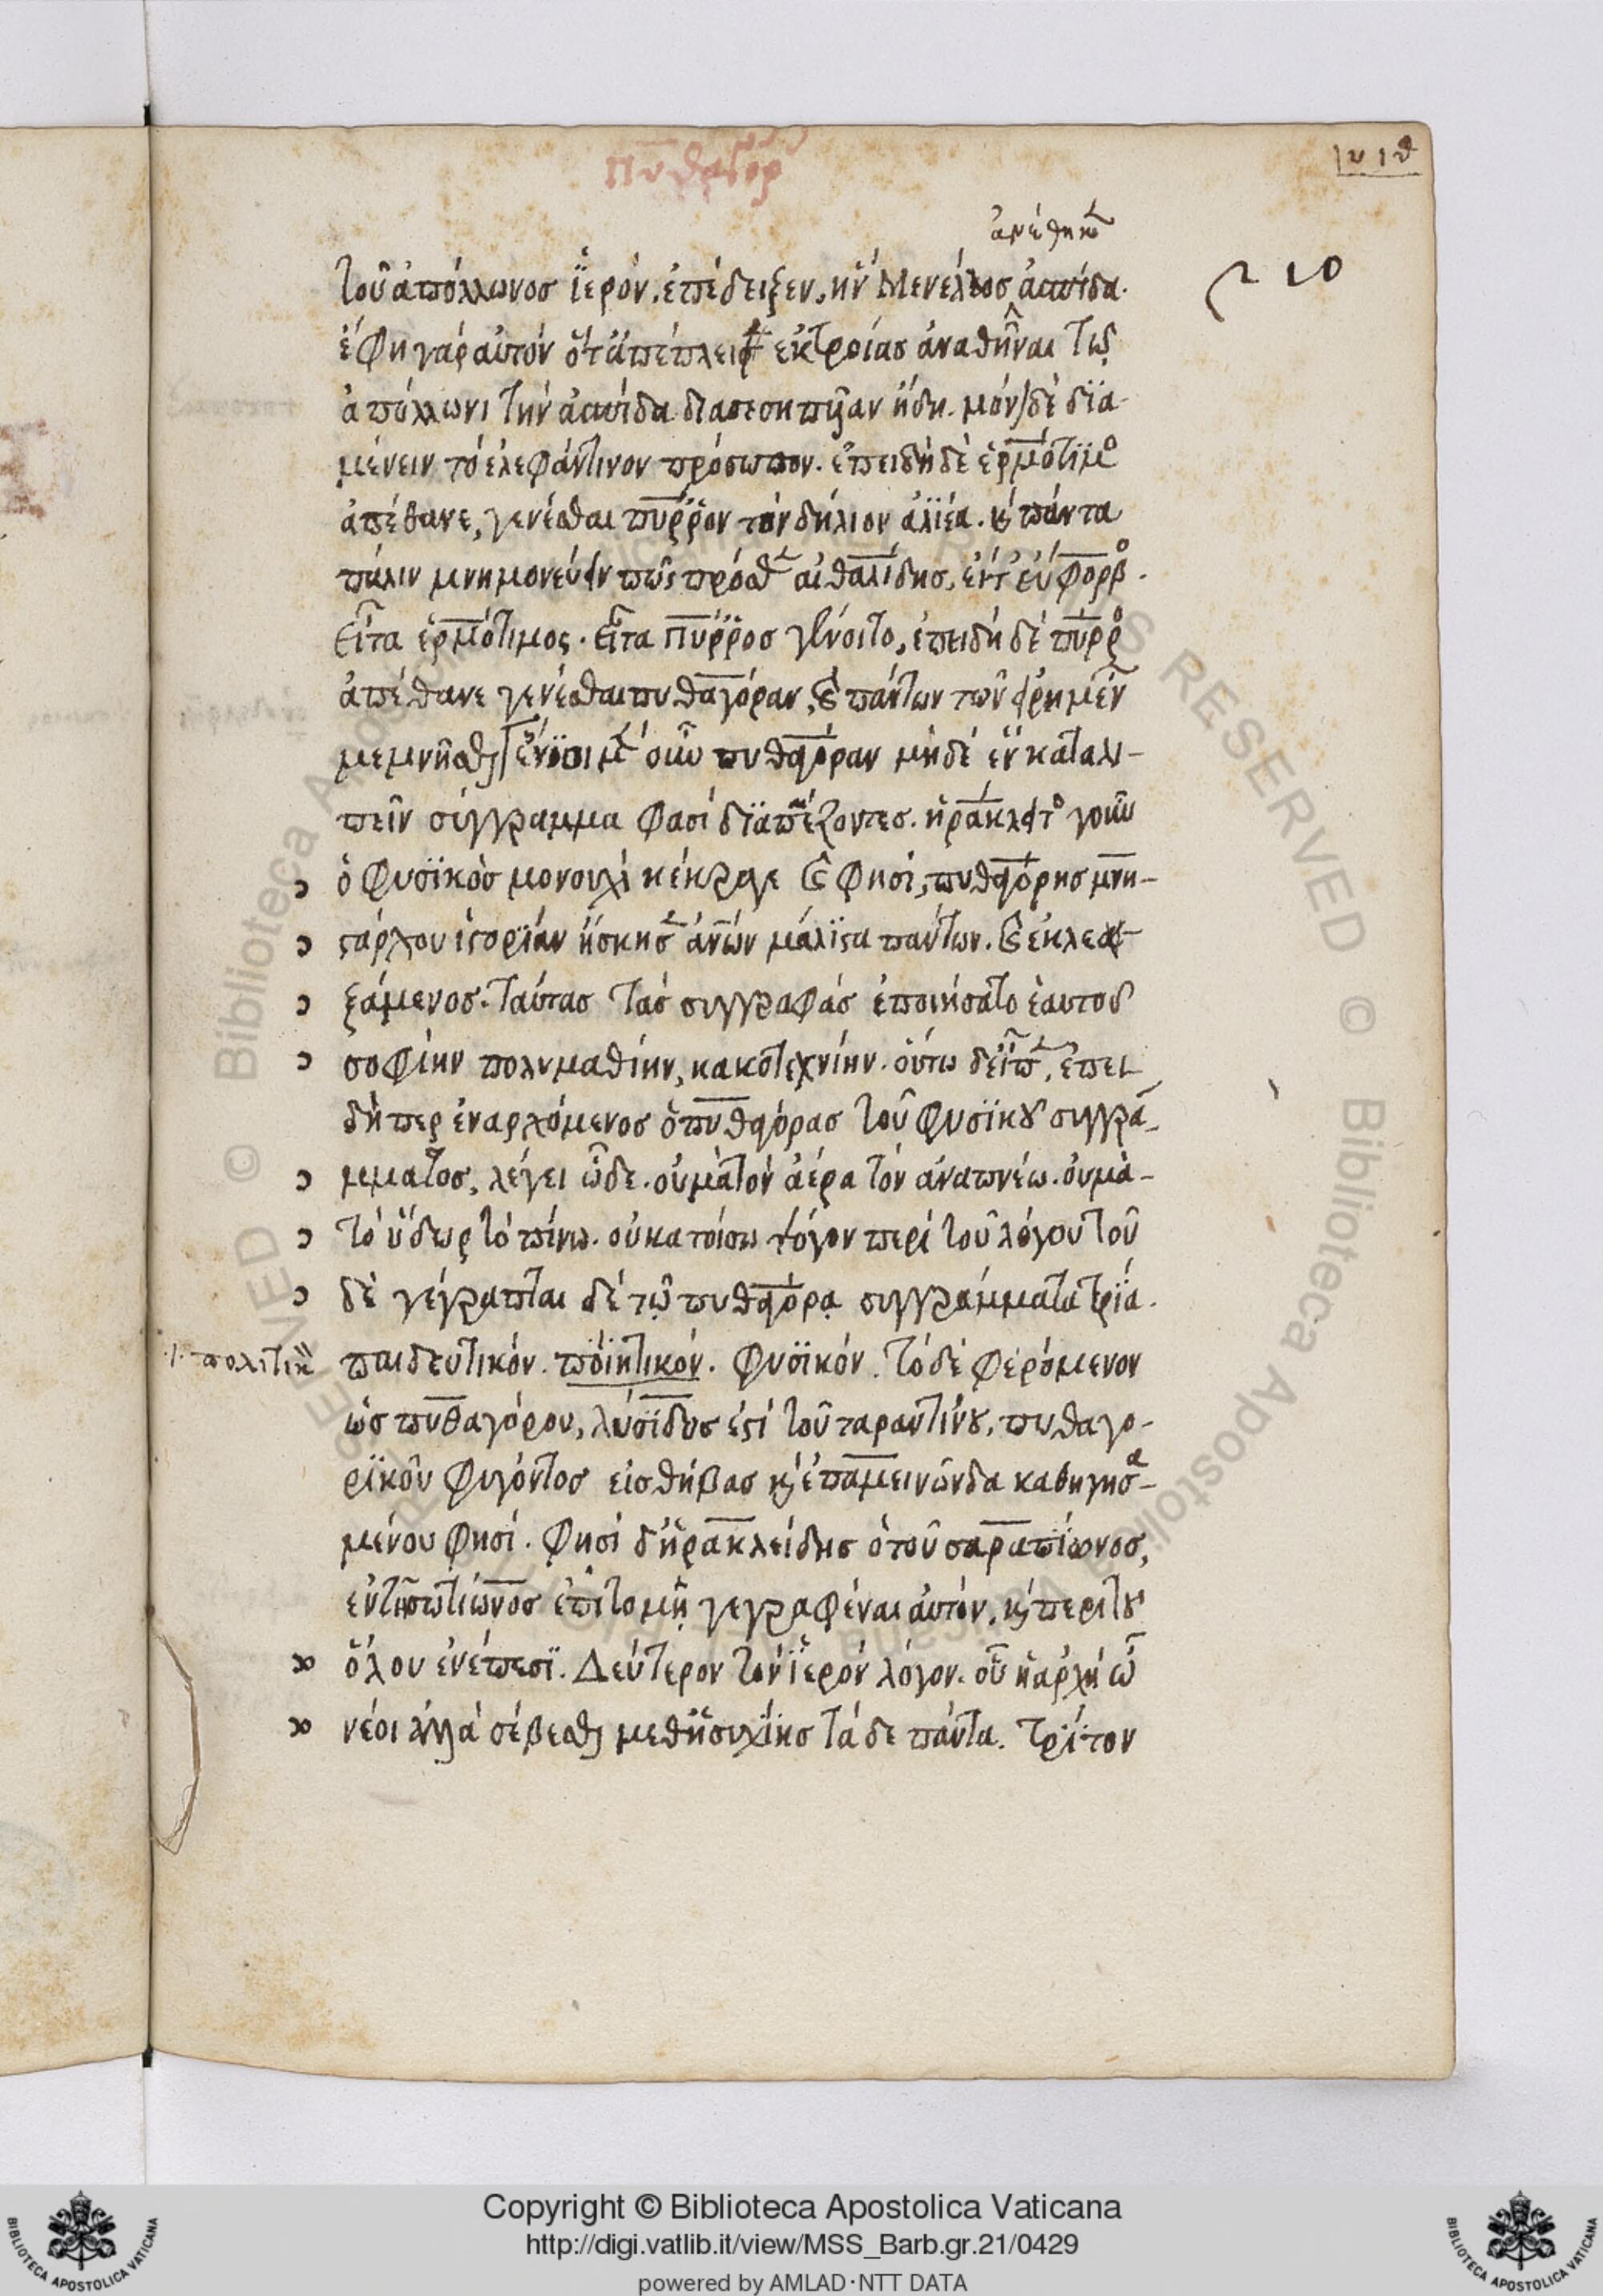 Πυθαγόρ
υιθ
ἀνέθηκε
210
τοῦ ἀπόλλωνος ἱερόν. ἐπέδειξεν, ἣν Μενέλαος ἀσπίδα.
ἔφη γάρ αὐτόν ὅτ' ἀπέπλει ἐκ τροίας ἀναθῆναι τῷ
ἀπόλλωνι τὴν ἀσπίδα διασεσηπῆαν ἤδη. μόνον δὲ δϊα-
μένειν τό ἐλεφάντινον πρόσωπον. ἐπειδὴ δὲ ἑρμότιμος
ἀπέθανε, γενέσθαι πύρρον τὸν δήλιον ἁλιέα. καὶ πάντα
πάλιν μνημονεύειν πῶς πρόσθεν αἰθαλίδης, εἶτ' εὔφορβος.
εἶτα ἑρμότιμος. εἶτα πύρρος γένοιτο, ἐπειδὴ δὲ πύρρος
ἀπέθανε γενέσθαι πυθαγόραν, καὶ πάντων τῶν εἰρημένων
μεμνῆσθαι ἔνϊοι μὲν οὖν πυθαγόραν μηδέ ἓν καταλι-
πεῖν σύγγραμμα φασί δϊαπέζοντες. ἡράκλειτος γοῦν
ὁ φυσϊκὸς μονουχὶ κέκραγε καὶ φησί, πυθαγόρης μνη-
σάρχου ἱστορίαν ἤσκησεν ἀνων μάλϊστα πάντων. καὶ ἐκλε
ξάμενος. ταύτας τὰς συγγραφάς ἐποιήσατο ἑαυτοῦ
σοφίην πολυμαθίην, κακοτεχνίην. οὕτω δ' εἶπεν, ἐπει
δήπερ ἐναρχόμενος ὁ πυθαγόρας τοῦ φυσϊκοῦ συγγρά-
μματος, λέγει ὧδε. οὐ μὰ τὸν ἀέρα τόν ἀναπνέω. οὐ μὰ-
τὸ ὕδωρ τὸ πίνω. οὐ κατοίσω ψόγον περί τοῦ λόγου τοῦ
δὲ γέγραπται δέ τῷ πυθαγόρᾳ συγγράμματα τρϊά.
παιδευτικόν. ποιητικόν. φυσϊκόν. τὸ δὲ φερόμενον
πολιτικὸν
ὡς πυθαγόρου, λύσϊδος ἐστί τοῦ ταραντίνου, πυθαγο-
ρϊκοῦ φυγόντος εἰς θήβας καὶ ἐπαμεινῶνδα καθηγησα-
μένου φησί. φησί δ' ἡρακλείδης ὁ τοῦ σαραπίωνος,
ἐν τῇ σωτίωνος ἐπιτομῇ γεγραφέναι αὐτόν, καὶ περὶ τοῦ
ὅλου ἐν ἔπεσϊ. Δεύτερον τὸν ἱερόν λόγον. οὗ ἡ ἀρχή ὦ
νέοι ἀλλὰ σέβεσθαι μεθ' ἡσυχίης τάδε πάντα. τρίτον
Copyright © Biblioteca Apostolica Vaticana
http://digi.vatlib.it/view/MSS_Barb.gr.21/0429
powered by AMLAD·NTT DATA